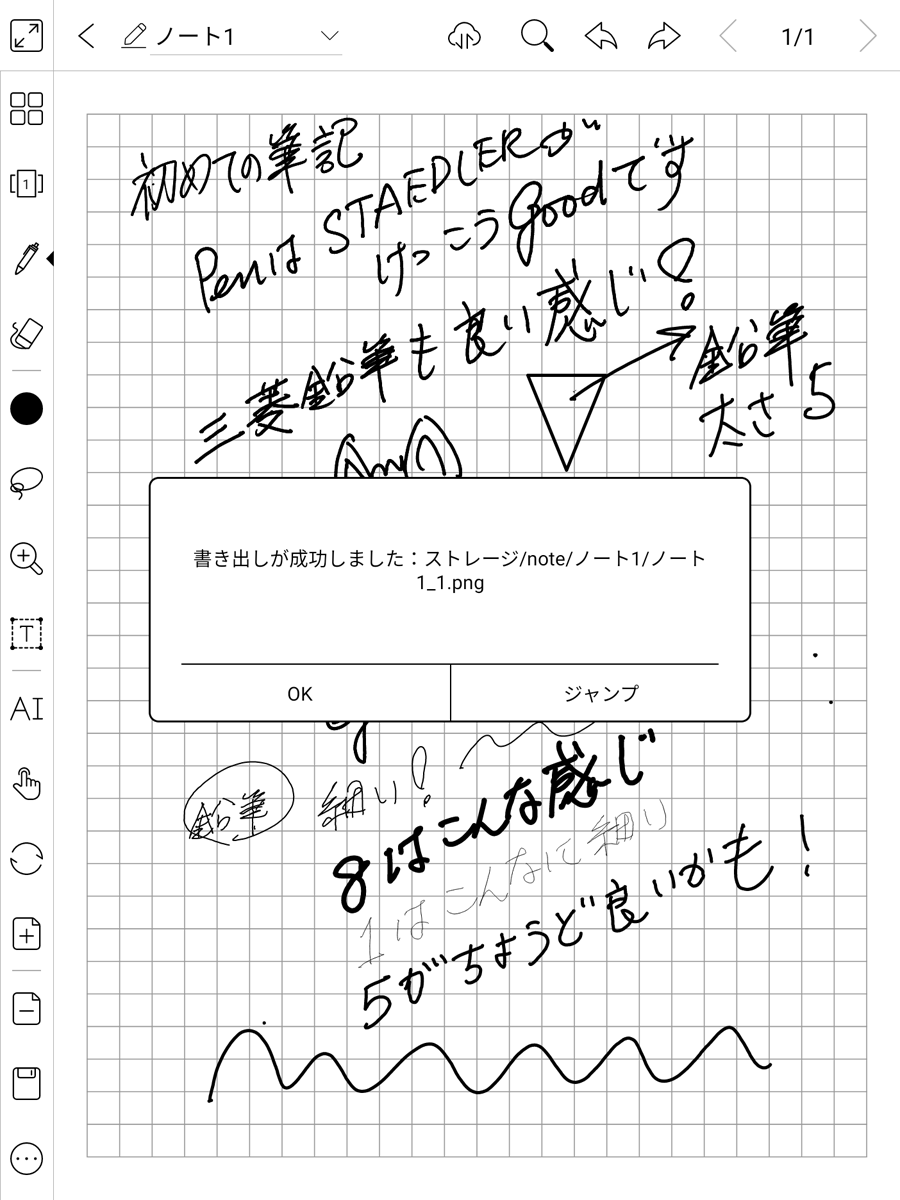 ノート1
1/1
1
初めての筆記
Penは STAEDLERが
けっこうGoodです
三菱鉛筆も良い感じ!
鉛筆
太さ 5
書き出しが成功しました：ストレージ/note/ノート
1_1.png
OK
ジャンプ
T
AI
鉛筆 細い!
8はこんな感じ
1はこんなに細い
5がちょうど良いかも!